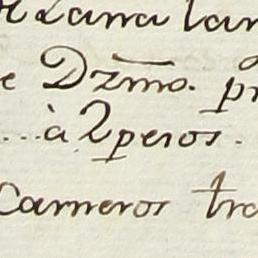 Lana lan
e Dzmo. pr
... à 2 pesos.
Carneros tra